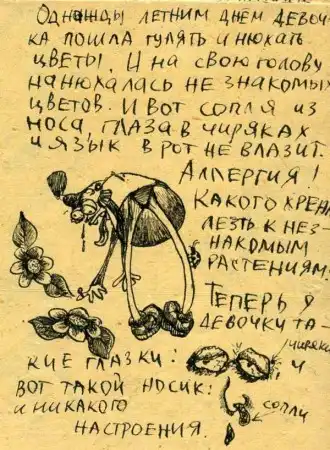 Однажды летним днём девоч-
ка пошла гулять и нюхать
цветы. И на свою голову
нанюхалась не знакомых
цветов. И вот сопля из
носа, глаза в чиряках
и язык в рот не влазит.
Аллергия!
Какого хрена
лезть к нез-
накомым
растениям.
Теперь у
девочку та-
чиряки
кие глазки: и
вот такой носик:
сопли
и никакого
настроения.